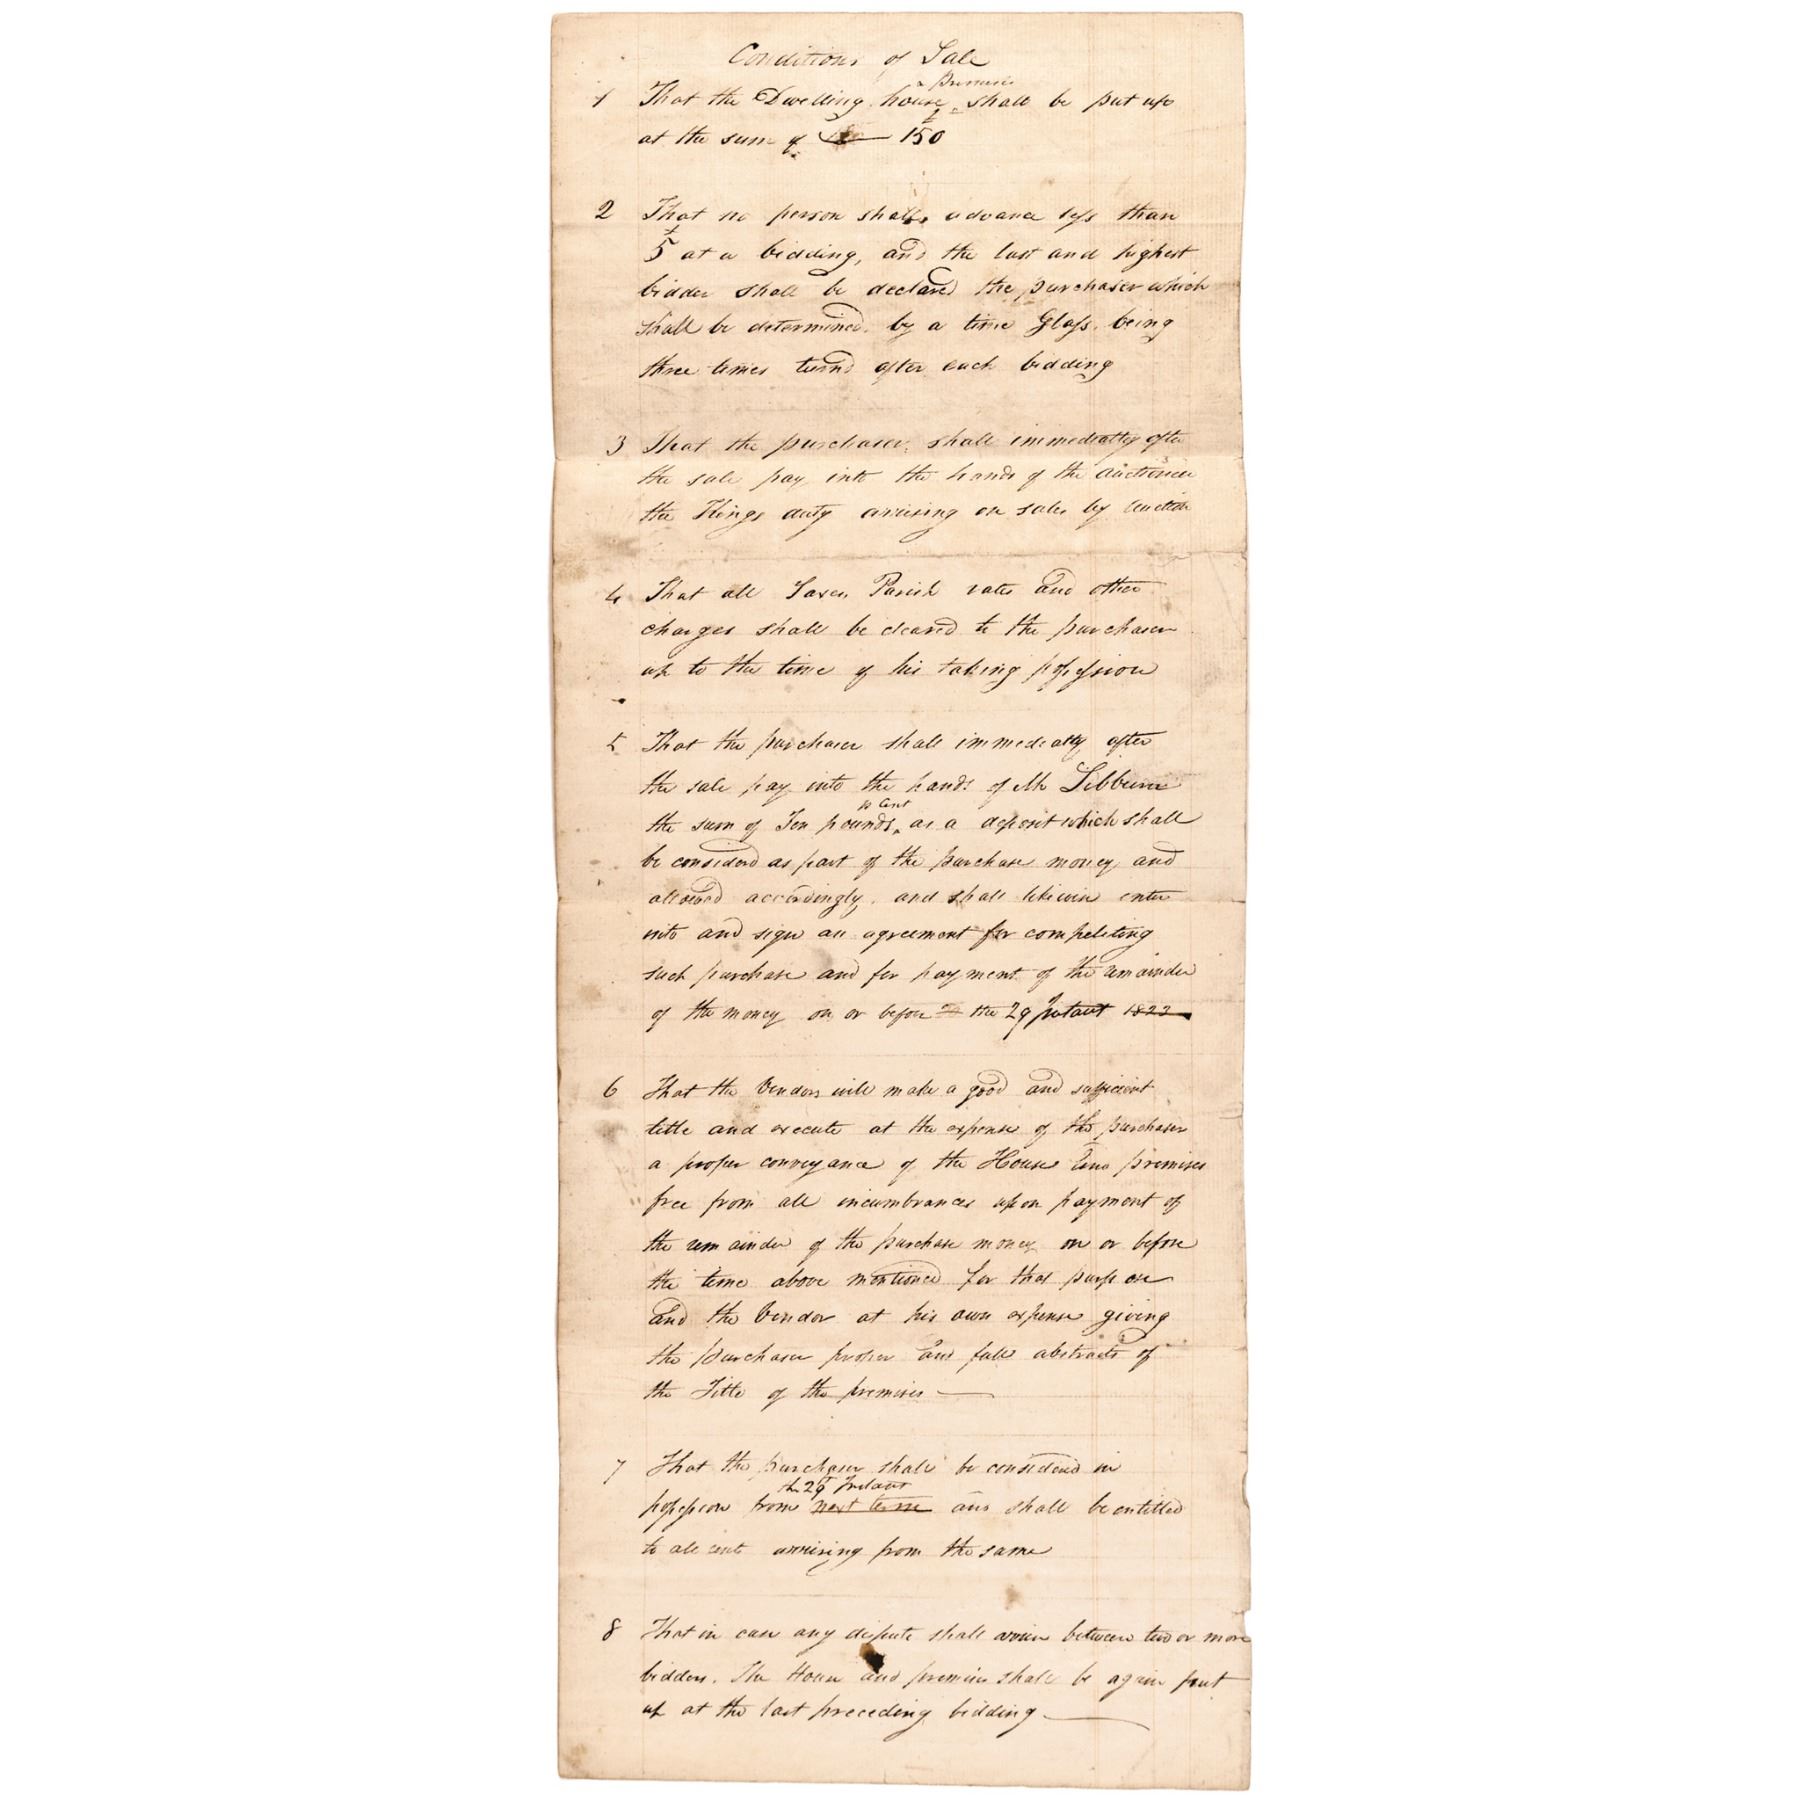 Conditions of Sale
& Premises
1 That the Dwelling house shall be put up
at the sum of £ 150
2 That no person shall advance less than
£5 at a bidding, and the last and highest
bidder shall be declared the purchaser which
shall be determined by a time Glass being
three times turnd after each bidding
3 That the purchaser shall immediatly after
the sale pay into the hands of the auctioneer
the Kings duty arising on sales by auction
4 That all Taxes Parish rates and other
charges shall be cleared to the purchaser
up to the time of his taking possession
5 That the purchaser shall immediatly after
the sale pay into the hands of Mr
p Cent
the sum of Ten pounds as a deposit which shall
be considerd as part of the purchase money and
allowed accordingly and shall likewise enter
into and sign an agreement for compleating
such purchase and for payment of the remainder
of the money on or before the 29 Instant 1823
6 That the Vendors will make a good and sufficient
title and execute at the expense of the purchaser
a proper conveyance of the House and premises
free from all incumbrances upon payment of
the remainder of the purchase money on or before
the time above mentioned for that purpose
and the Vendor at his own expense giving
the purchaser proper and full abstracts of
the Title of the premises
7 That the purchaser shall be considered in
the 29 Instant
possession from next term and shall be entitled
to all rents arrising from the same
8 That in case any dispute shall arise between two or more
bidders. The House and premises shall be again put
up at the last preceding bidding